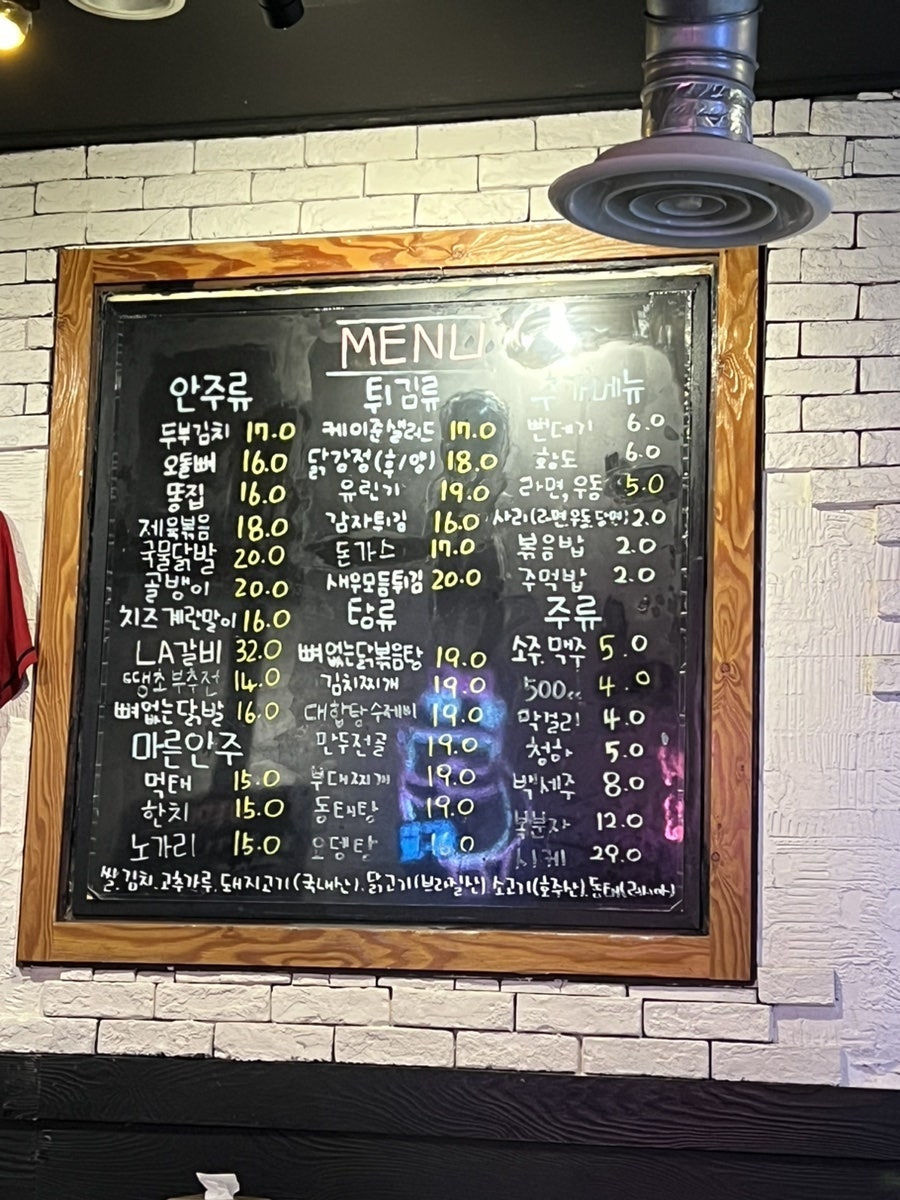 MENU
안주류
두부김치 17.0
오돌뼈 16.0
똥집 16.0
제육볶음 18.0
국물닭발 20.0
골뱅이 20.0
치즈계란말이 16.0
LA갈비 32.0
땡초부추전 14.0
뼈없는닭발 16.0
마른안주
먹태 15.0
한치 15.0
노가리 15.0
튀김류
케이준샐러드 17.0
닭강정(후/양) 18.0
유린기 19.0
감자튀김 16.0
돈가스 17.0
새우모듬튀김 20.0
탕류
뼈없는닭볶음탕 19.0
김치찌개 19.0
대합탕수제비 19.0
만두전골 19.0
부대찌개 19.0
동태탕 19.0
오뎅탕 16.0
추가메뉴
뻔데기 6.0
황도 6.0
라면, 우동 5.0
사리(라면우동당면) 2.0
볶음밥 2.0
주먹밥 2.0
주류
소주.맥주 5.0
500cc 4.0
막걸리 4.0
청하 5.0
백세주 8.0
복분자 12.0
29.0
쌀.김치.고추가루.돼지고기(국내산).닭고기(브라질산) 소고기(호주산).동태(러시아)